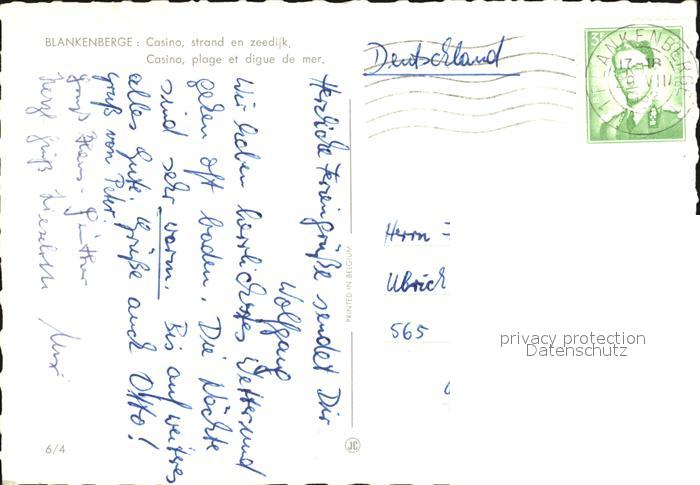 BLANKENBERGE : Casino, strand en zeedijk.
Casino, plage et digue de mer.
Deutschland
Herzliche Feriengrüße sendet Dir
Wolfgang
Wir haben herrliches Wetter und
gehen oft baden. Die Nächte
sind sehr warm. Bis auf weiteres
alles Gute. Grüße auch Otto!
Gruß von Peter
Gruß Hans-Günther
herzl. Grüß Lieselotte
PRINTED IN BELGIUM
Herrn
Ulrich
565
privacy protection
Datenschutz
6/4
JC
3F
BLANKENBERGE
17-18
VIII